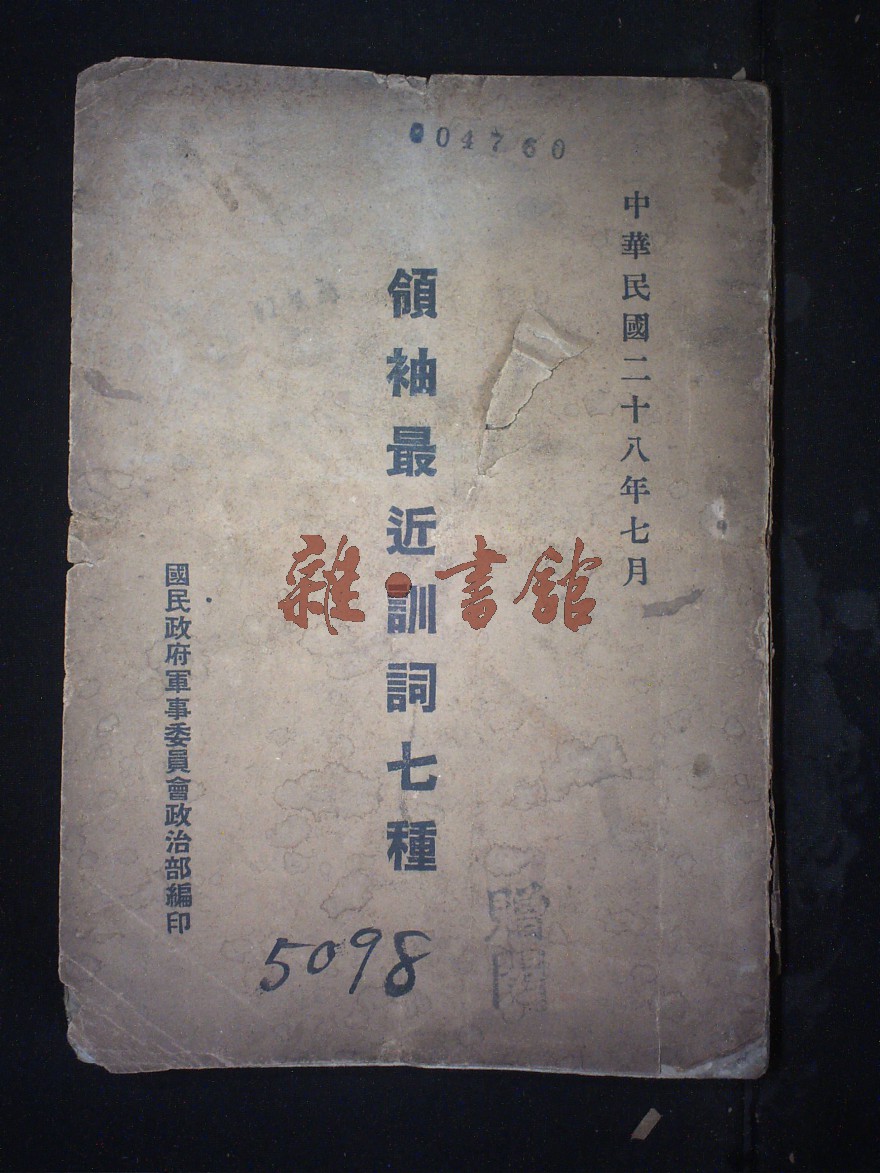 004760
中華民國二十八年七月
領袖最近訓詞七種
國民政府軍事委員會政治部編印
雜·書館
5098
贈閱